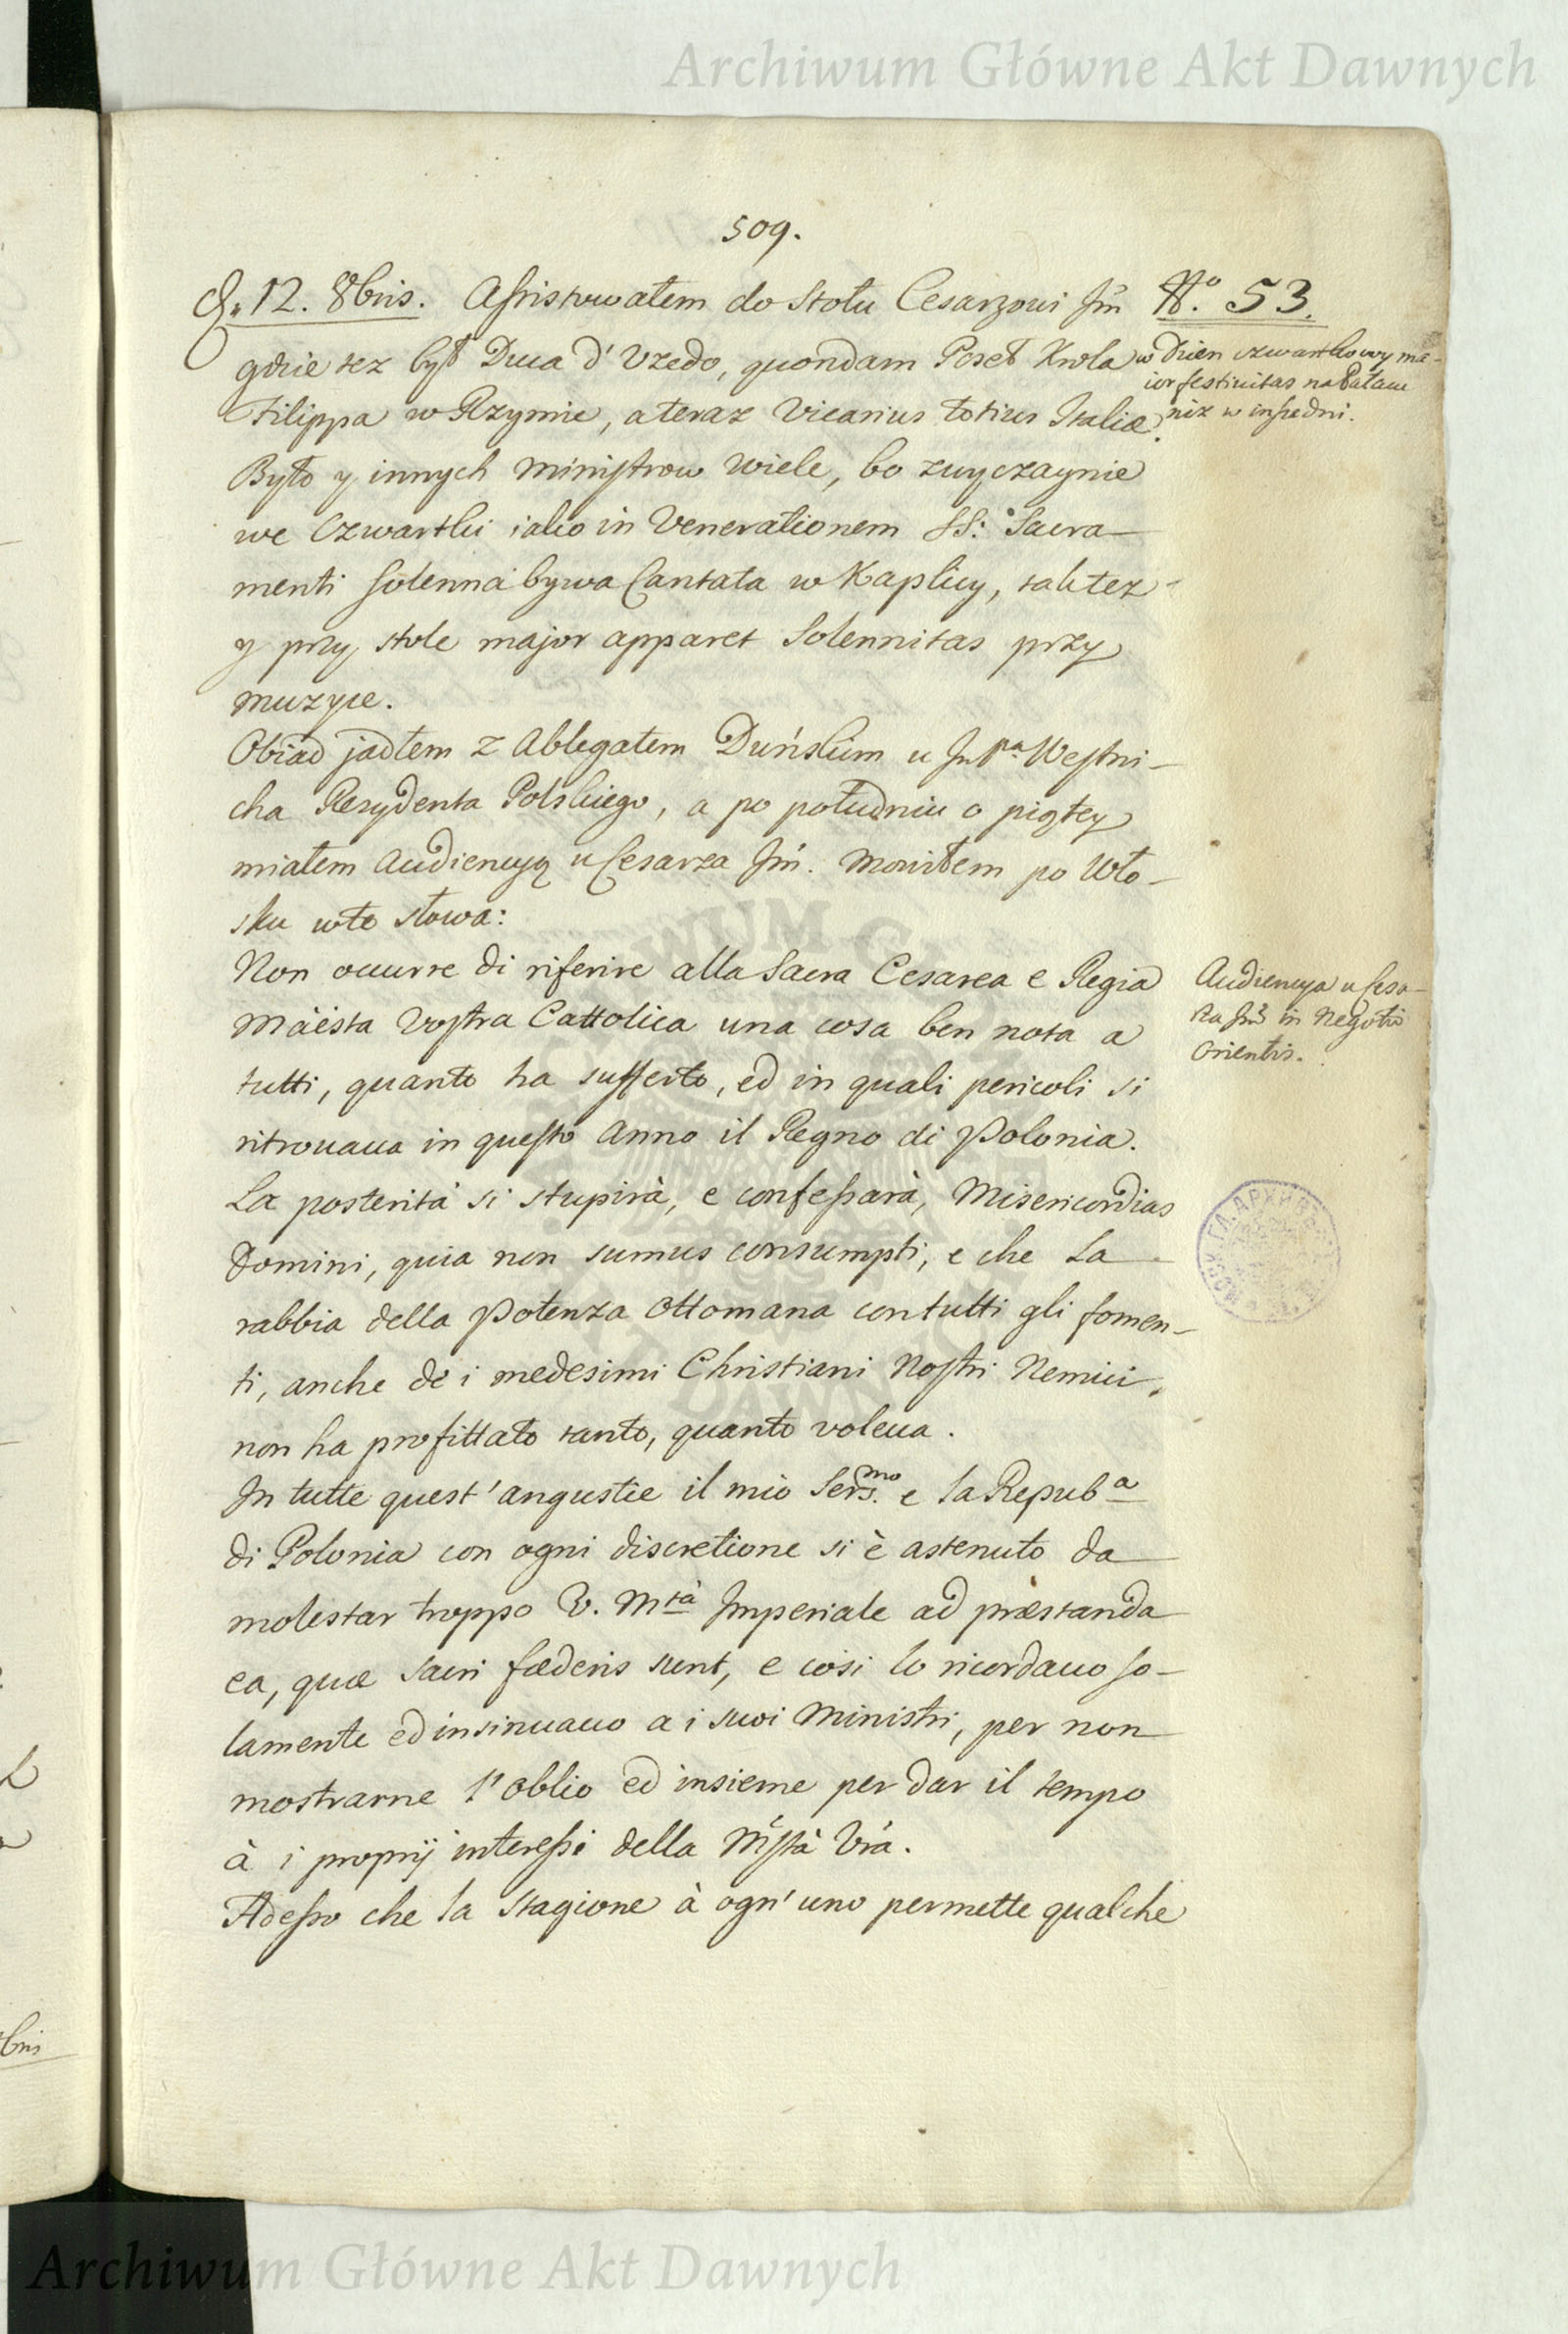 Archiwum Główne Akt Dawnych
509.
d. 12. 8bris. Assistowałem do Stołu Cesarzowi Jm̃
gdzie tez był Duca d'Uzedo, quondam Poseł Krola
Filippa w Rzymie, a teraz Vicarius totius Italiæ.
Było y innych Ministrow wiele, bo zwyczaynie
we Czwartki iako in Venerationem SS: Sacra-
menti solenna bywa Cantata w Kaplicy, tak tez
y przy stole major apparet Solennitas przy
muzyce.
Obiad jadłem z Ablegatem Duńskim u Jm Pa Westni-
cha Rezydenta Polskiego, a po południu o piątey
miałem Audiencyą u Cesarza Jm̃. Mowiłem po Wło-
sku w te słowa:
Non occurre di riferire alla Sacra Cesarea e Regia
Maèsta Vostra Cattolica una cosa ben nota a
tutti, quanto ha sufferto, ed in quali pericoli si
ritrouaua in questo Anno il Regno di Polonia.
La posterità si stupirà, e confessarà, Misericordias
Domini, quia non sumus consumpti, e che La
rabbia della Potenza Ottomana con tutti gli fomen-
ti, anche de i medesimi Christiani Nostri Nemici,
non ha profittato tanto, quanto voleua.
In tutte quest'angustie il mio Sers.mo e la Repub.a
di Polonia con ogni discretione si è astenuto da
molestar troppo V. Mtà Imperiale ad præstanda
ea, quæ Sacri fœderis sunt, e cosi lo ricordauo so-
lamente ed insinuauo a i suoi Ministri, per non
mostrarne l'Oblio ed insieme per dar il tempo
à i proprij interessi della Mstà Vrá.
Adesso che la Stagione à ogn'uno permette qualche
No. 53.
w dzien czwartkowy ma-
ior festivitas na Pałacu
niz w insze dni.
Audiencya u Cesa-
rza Jm̃ in Negotio
Orientis.
Archiwum Główne Akt Dawnych